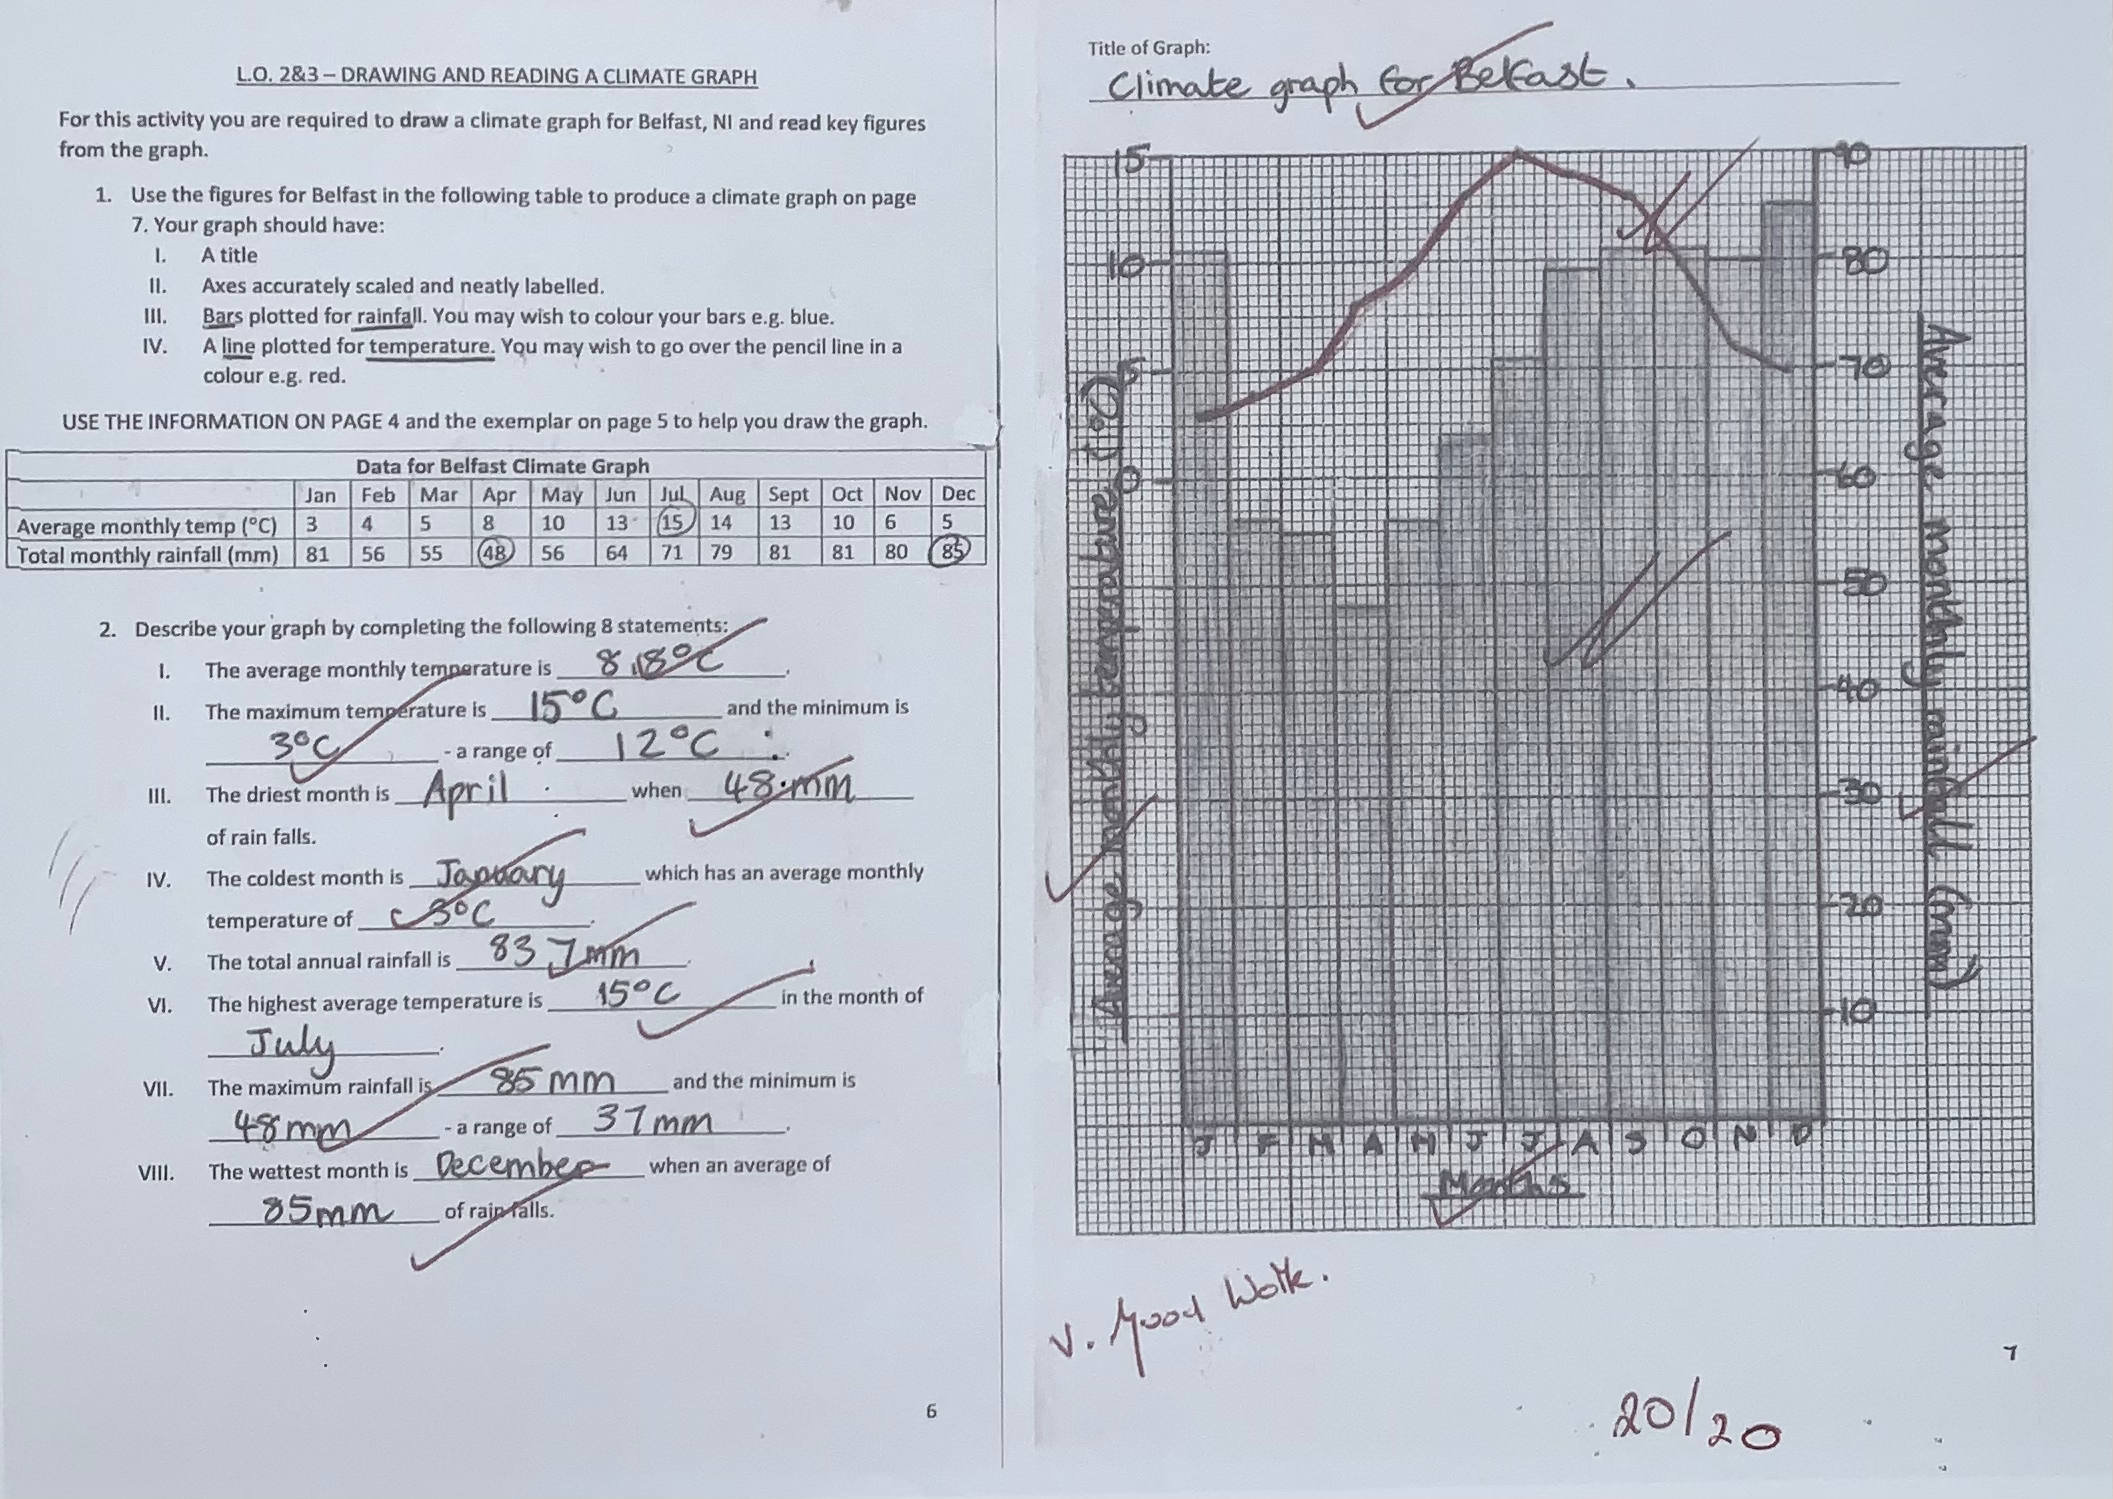 L.O. 2&3 – DRAWING AND READING A CLIMATE GRAPH
For this activity you are required to draw a climate graph for Belfast, NI and read key figures
from the graph.
1. Use the figures for Belfast in the following table to produce a climate graph on page
7. Your graph should have:
I. A title
II. Axes accurately scaled and neatly labelled.
III. Bars plotted for rainfall. You may wish to colour your bars e.g. blue.
IV. A line plotted for temperature. You may wish to go over the pencil line in a
colour e.g. red.
USE THE INFORMATION ON PAGE 4 and the exemplar on page 5 to help you draw the graph.
Data for Belfast Climate Graph
Jan Feb Mar Apr May Jun Jul Aug Sept Oct Nov Dec
Average monthly temp (°C) 3 4 5 8 10 13 15 14 13 10 6 5
Total monthly rainfall (mm) 81 56 55 48 56 64 71 79 81 81 80 85
2. Describe your graph by completing the following 8 statements:
I. The average monthly temperature is 8.8°C.
II. The maximum temperature is 15°C and the minimum is
3°C - a range of 12°C.
III. The driest month is April when 48.mm
of rain falls.
IV. The coldest month is January which has an average monthly
temperature of 3°C.
V. The total annual rainfall is 837mm.
VI. The highest average temperature is 15°C in the month of
July.
VII. The maximum rainfall is 85mm and the minimum is
48mm - a range of 37mm.
VIII. The wettest month is December when an average of
85mm of rain falls.
6
Title of Graph:
Climate graph for Belfast.
15
10
5
0
Average monthly temperature (°C)
90
80
70
60
50
40
30
20
10
Average monthly rainfall (mm)
J F M A M J J A S O N D
Months
V. Good Work.
7
20/20